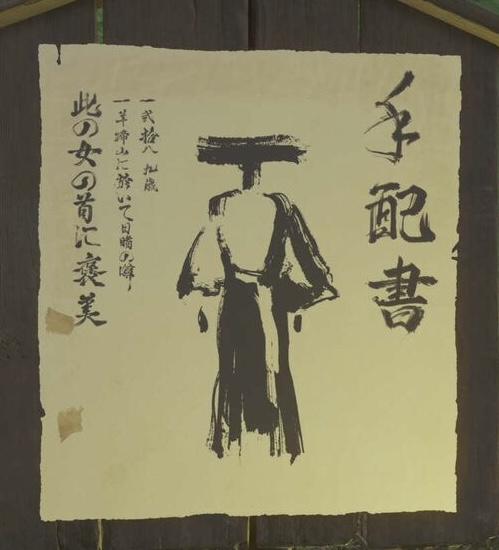 手配書
一 弐拾八九歳
一 羊蹄山に於いて
此の女の首に褒美